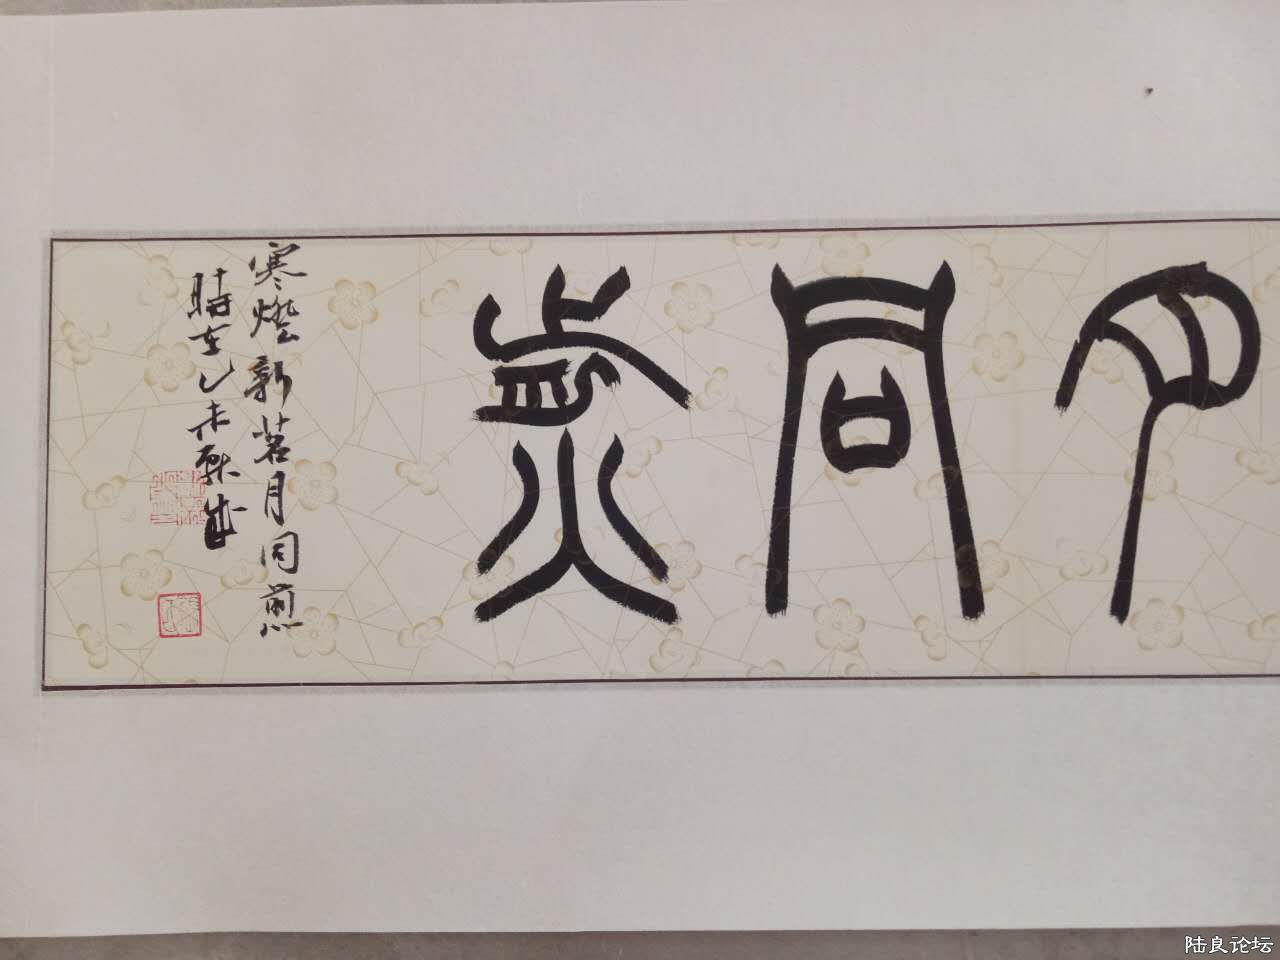 月同煎
寒燈新茗月同煎
時在乙未秋
陆良论坛